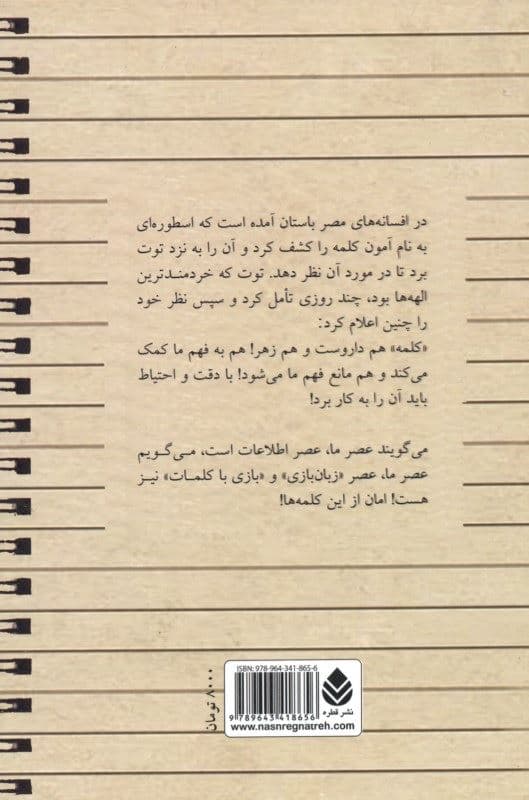 در افسانه‌های مصر باستان آمده است که اسطوره‌ای
به نام آمون کلمه را کشف کرد و آن را به نزد توت
برد تا در مورد آن نظر دهد. توت که خردمندترین
الهه‌ها بود، چند روزی تأمل کرد و سپس نظر خود
را چنین اعلام کرد:
«کلمه» هم داروست و هم زهر! هم به فهم ما کمک
می‌کند و هم مانع فهم ما می‌شود! با دقت و احتیاط
باید آن را به کار برد!
می‌گویند عصر ما، عصر اطلاعات است، می‌گویم
عصر ما، عصر «زبان‌بازی» و «بازی با کلمات» نیز
هست! امان از این کلمه‌ها!
ISBN: 978-964-341-865-6
9 789643 418656
www.nasnregnatreh.com
نشر قطره
۸۰۰۰ تومان